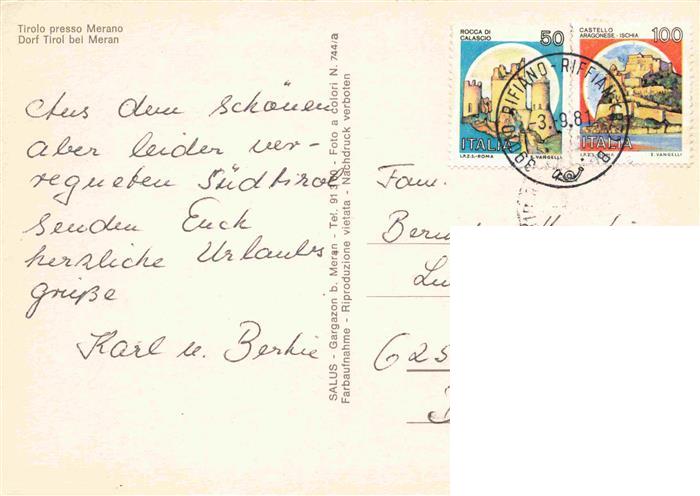 Tirolo presso Merano
Dorf Tirol bei Meran
Aus dem schönen
aber leider ver-
regneten Südtirol
senden Euch
herzliche Urlaubs
grüße
Karl u.
SALUS - Gargazon b. Meran - Tel. 91 - Foto a colori N. 744/a
Farbaufnahme - Riproduzione vietata - Nachdruck verboten
ROCCA DI
CALASCIO
50
ITALIA
I.P.Z.S.-ROMA E. VANGELLI
CASTELLO
ARAGONESE - ISCHIA
100
ITALIA
I.P.Z.S.-ROMA E. VANGELLI
RIFIANO - RIFFIAN
-3.-9.8
Fam.